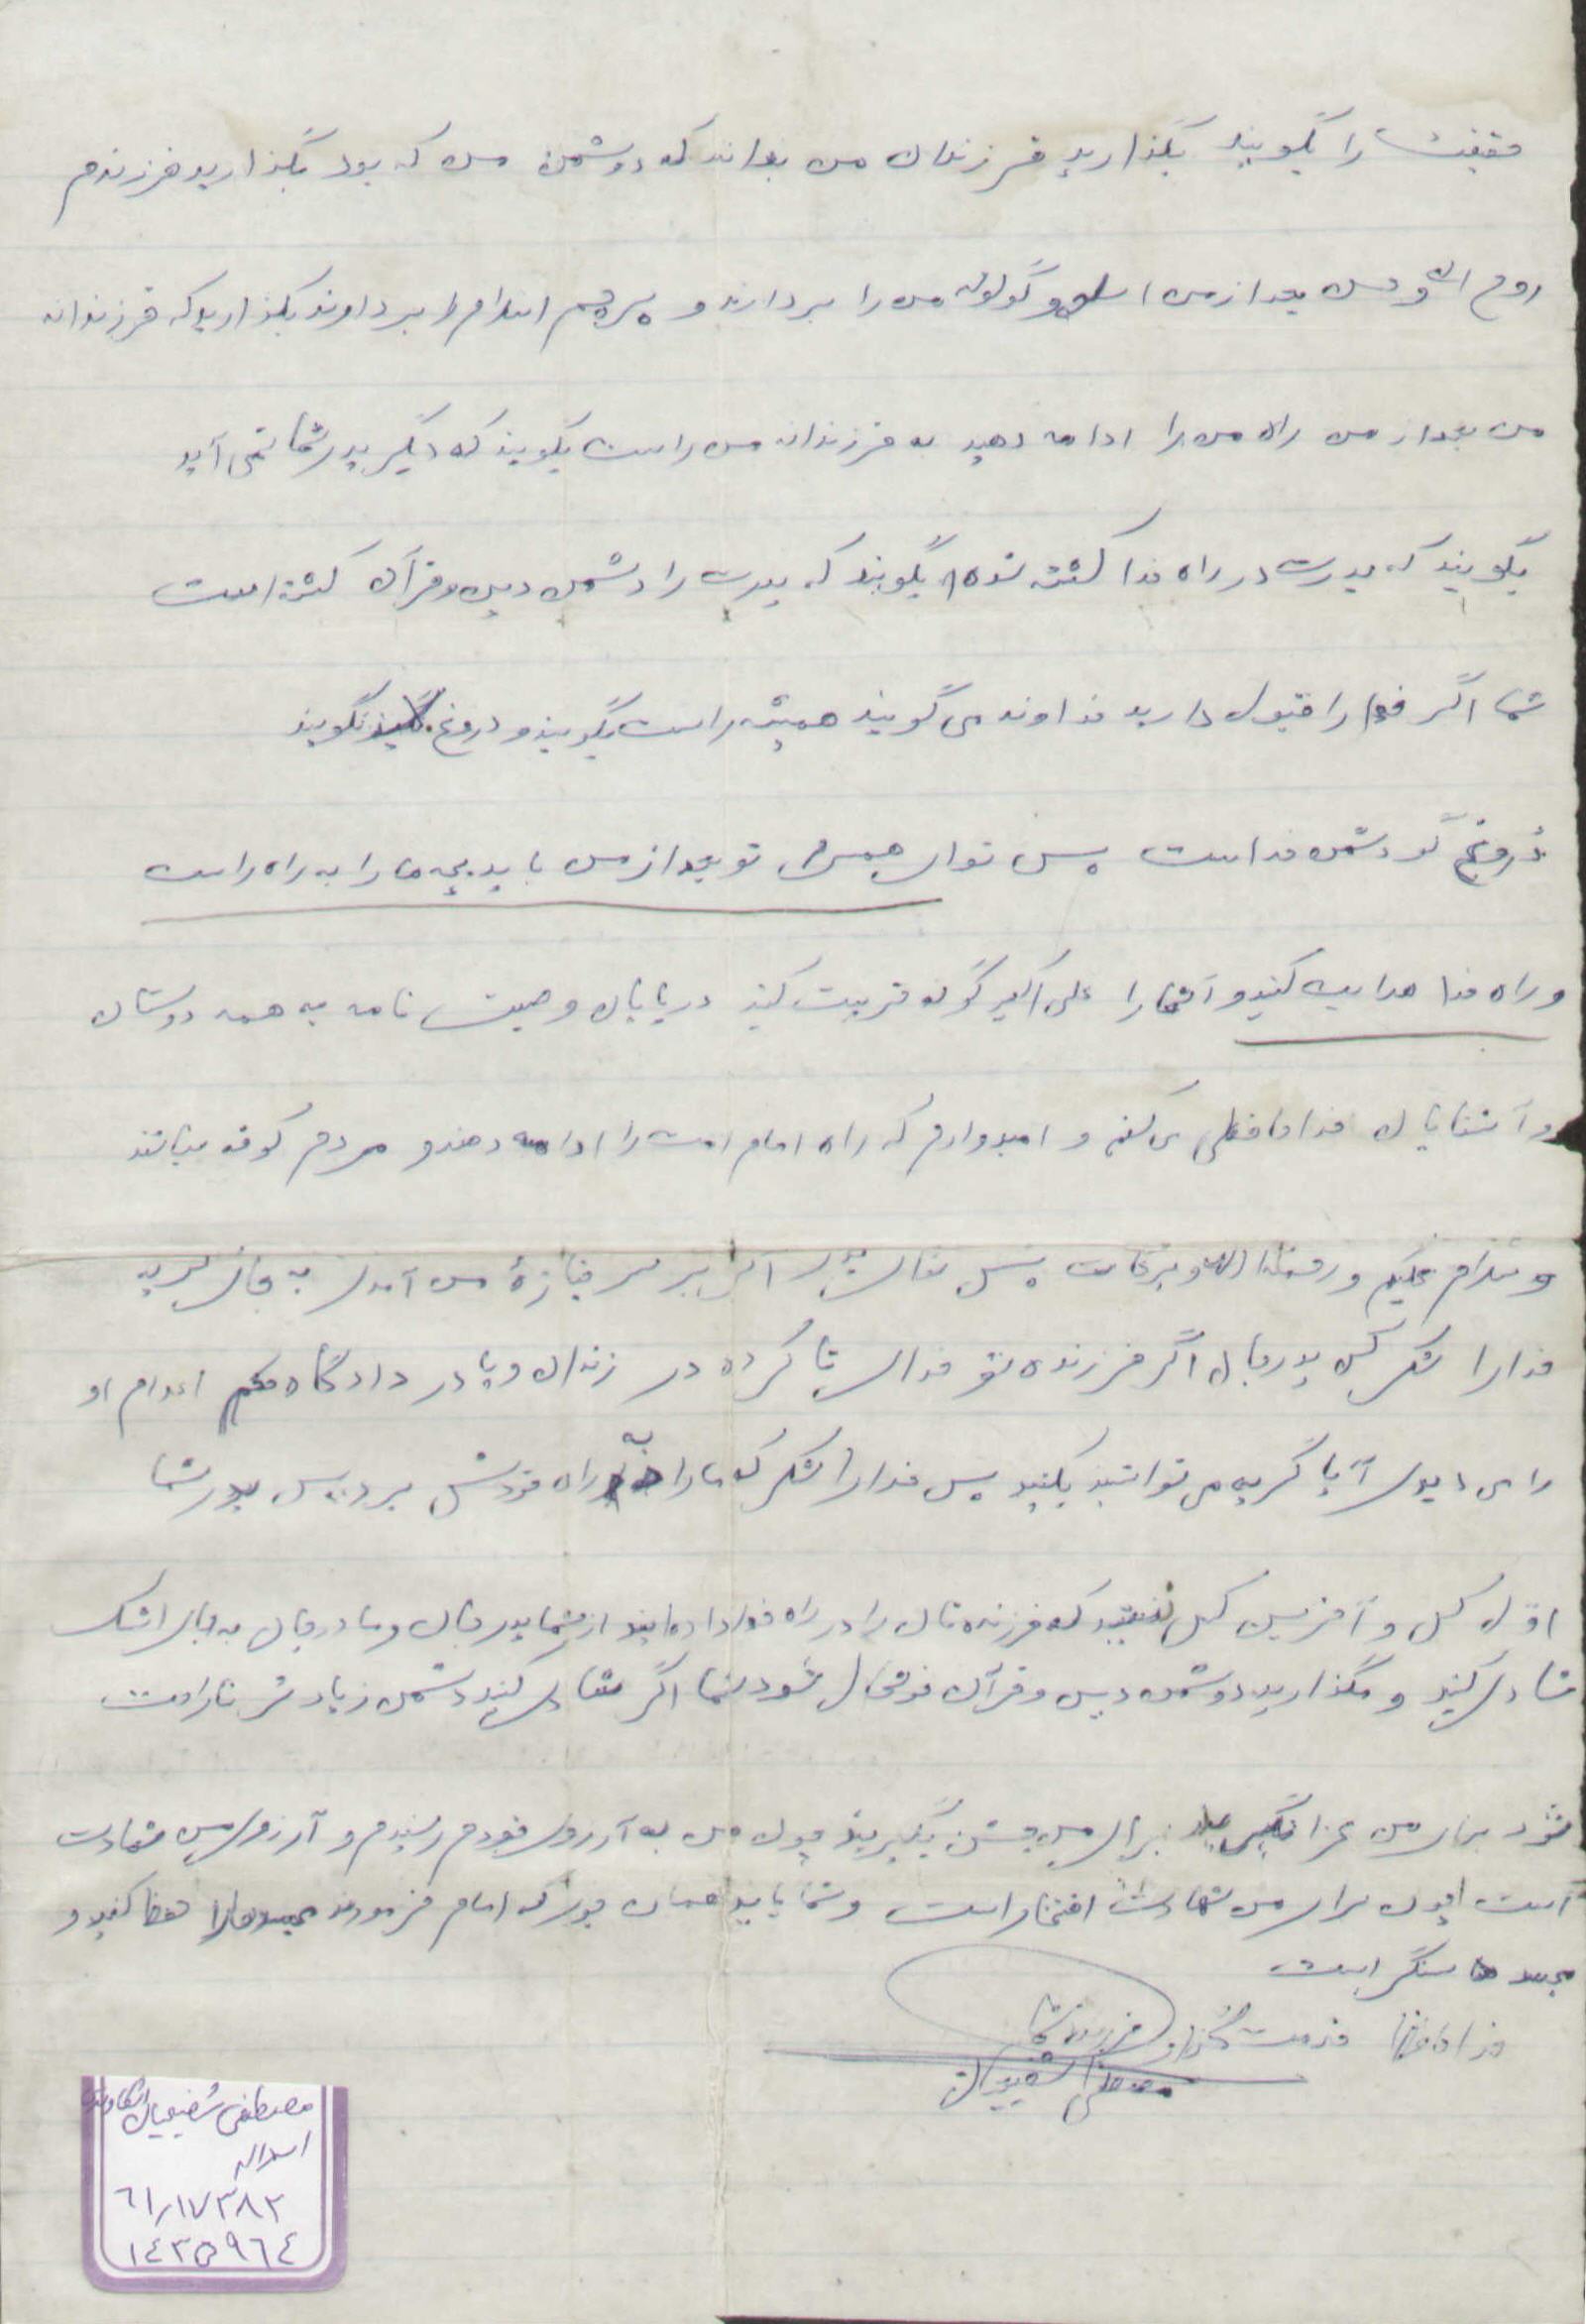 حقیقت را بگویند بگذارید فرزندان من بدانند که دوشمن من که بود بگذارید فرزندم
روح الله و حسن بعد از من اسلحه و گولوله من را بردارند و پرچم اسلام را بردارند بگذارید که فرزندان
من بعد از من راه من را ادامه دهید به فرزندان من راست بگویند که دیگر پدر شما نمی آید
بگویند که پدرت در راه خدا کشته شده بگویند که پدرت را دشمن دین و قرآن کشته است
شما اگر خدا را قبول دارید خداوند می گویند همیشه راست بگویند و دروغ نگویند
دروغ گو دشمن خداست پس توای همسرم تو بعد از من باید بچه ها را به راه راست
و راه خدا هدایت کنید و آنها را علی اکبر گونه تربیت کنید در پایان وصیت نامه به همه دوستان
و آشنایان خداحافظی می کنم و امیدوارم که راه امام امت را ادامه دهند و مردم کوفه نباشند
و سلام علیکم و رحمة الله و برکات پس اگر بر سر جنازهٔ من آمدی به جای گریه
خدا را شکر کن پدر جان اگر فرزنده تو خدای نا کرده در زندان و یا در دادگاه حکم اعدام او
را می دیدی آیا گریه می توانستید بکنید پس خدا را شکر که ما را به راه خودش برد پس پدر شما
اوّل کس و آخرین کس نیستید که فرزندتان را در راه خدا داده اید از شما پدر جان و مادر جان به جای اشک
شادی کنید و نگذارید دوشمن دین و قرآن خوشحال شود شما اگر شادی کنید دشمن زیادتر ناراحت
شود برای من عزا نگیرید برای من جشن بگیرید چون من به آرزوی خودم رسیدم و آرزوی من شهادت
است چون برای من شهادت افتخار است و شما باید همان جور که امام فرمودند مسجدها را حفظ کنید و
مسجدها سنگر است
خداحافظ خدمت گذار فرزند شما
مصطفی شفیعیان
مصطفی شفیعیان
اسداله
٦١/١٧٣٨٢
١٤٣٥٩٦٤